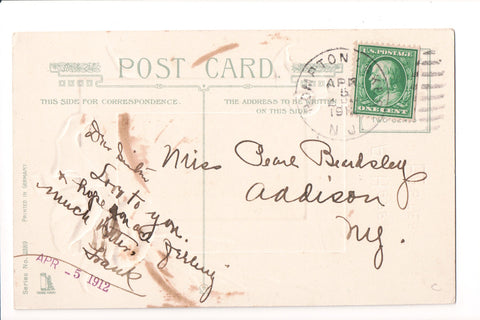 POST CARD.
THIS SIDE FOR CORRESPONDENCE.
THE ADDRESS TO BE WRITTEN
ON THIS SIDE.
U.S. POSTAGE
ONE CENT
POMPTON
APR
5
191
N.J.
Miss Pearl Beardsley
Addison
N.Y.
Love to you
& hope you are feeling
much better
Frank
APR - 5 1912
Series No.
PRINTED IN GERMANY
C